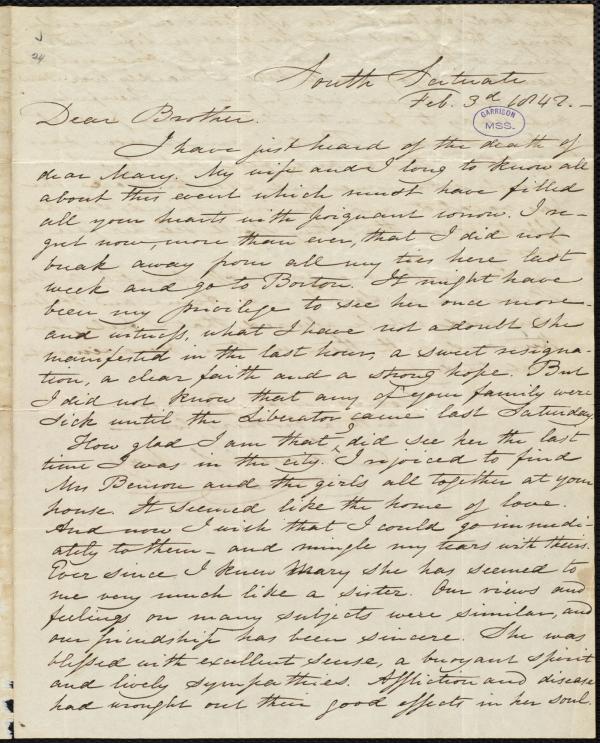 South Scituate
Feb. 3d 1842.—
GARRISON
MSS.
Dear Brother.
I have just heard of the death of
dear Mary. My wife and I long to know all
about this event which must have filled
all your hearts with poignant sorrow. I re-
gret now, more than ever, that I did not
break away from all my ties here last
week and go to Boston. It might have
been my privilege to see her once more—
and witness, what I have not a doubt she
manifested in the last hour, a sweet resigna-
tion, a clear faith and a strong hope. But
I did not know that any of your family were
sick until the Liberator came last Saturday.
How glad I am that I did see her the last
time I was in the city. I rejoiced to find
Mrs Benson and the girls all together at your
house. It seemed like the home of love.
And now I wish that I could go immedi-
ately to them— and mingle my tears with theirs.
Ever since I knew Mary she has seemed to
me very much like a sister. Our views and
feelings on many subjects were similar, and
our friendship has been sincere. She was
blessed with excellent sense, a buoyant spirit
and lively sympathies. Affliction and disease
had wrought out their good effects in her soul.